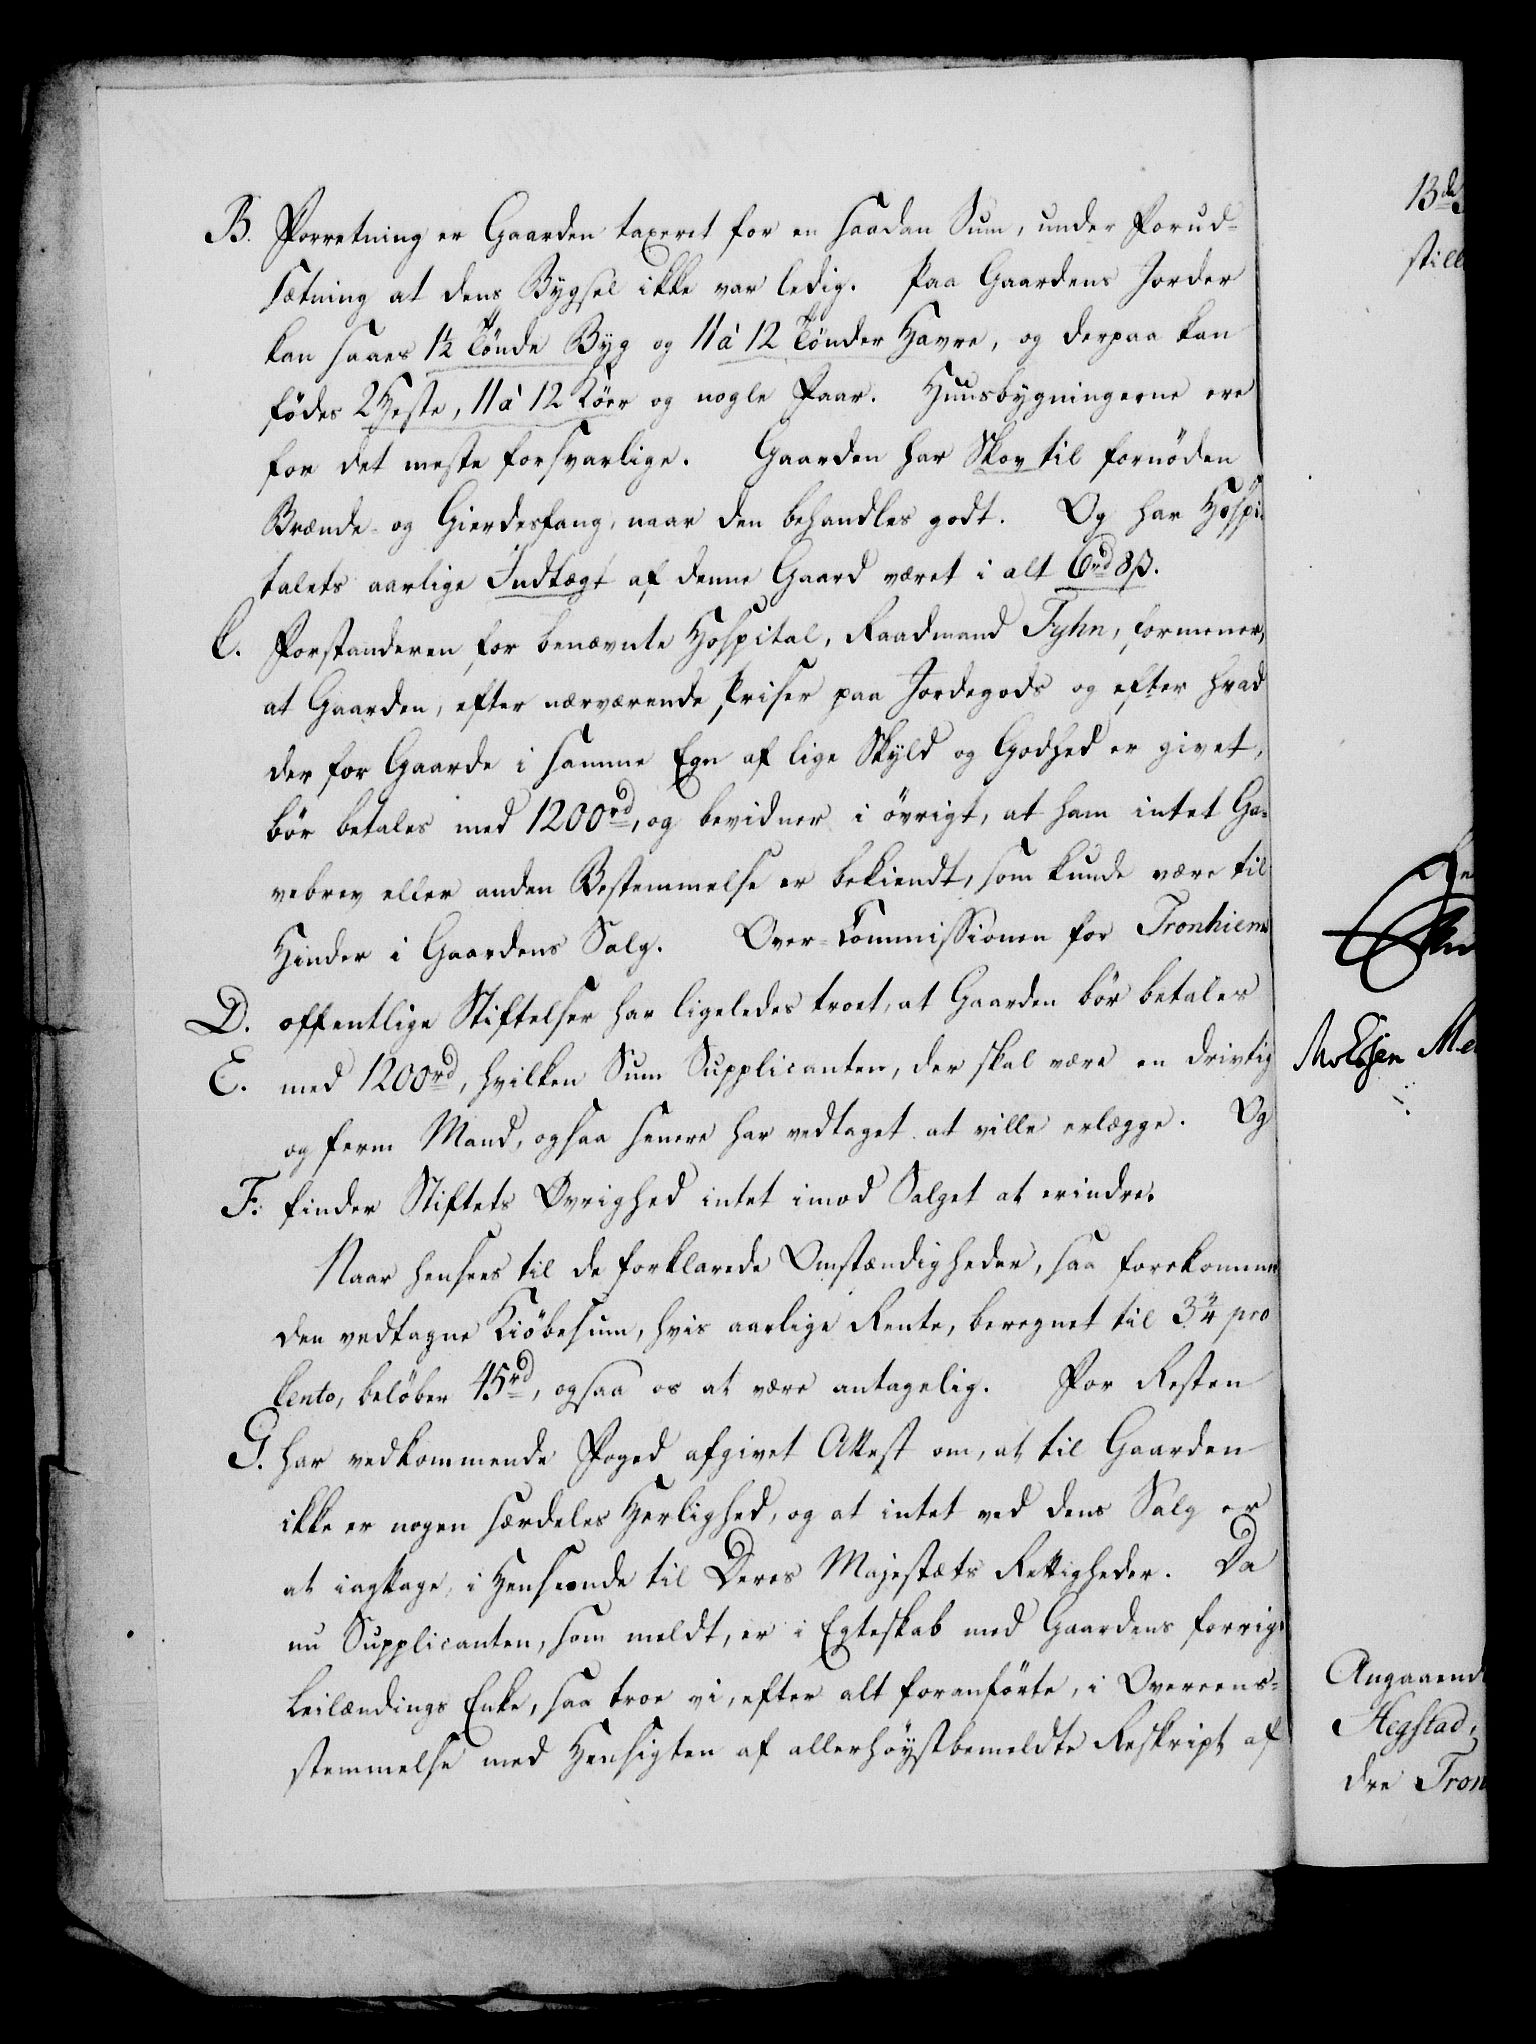 B. Forretning er Gaarden taxeret for en saadan Sum, under Forud-
sætning at dens Bygsel ikke var ledig. Paa Gaardens Jorder
kan saaes 1½ Tönde Byg og 11 à 12 Tönder Havre, og derpaa kan
födes 2 Heste, 11 à 12 Köer og nogle Faar. Huusbygningerne ere
for det meste forsvarlige. Gaarden har Skov til fornöden
Brænde- og Gierdesfang, naar den behandles godt. Og har Hospi-
talets aarlige Indtægt af denne Gaard været i alt 6rd 8ß.
C. Forstanderen for benævnte Hospital, Raadmand Tyhn, formener,
at Gaarden, efter nærværende Priser paa Jordegods og efter hvad
der for Gaarde i samme Egn af lige Skyld og Godhed er givet,
bör betales med 1200rd, og bevidner i övrigt, at ham intet Ga-
vebrev eller anden Bestemmelse er bekiendt, som kunde være til
Hinder i Gaardens Salg. Over-Commissionen for Tronhiems
D. offentlige Stiftelser har ligeledes troet, at Gaarden bör betales
E. med 1200rd, hvilken Sum Supplicanten, der skal være en drivtig
og ferm Mand, ogsaa senere har vedtaget at ville erlægge. Og
F. finder Stiftets Övrighed intet imod Salget at erindre.
Naar hensees til de forklarede Omstændigheder, saa forekommer
den vedtagne Kiöbesum, hvis aarlige Rente, beregnet til 3¾ pro
Cento, belöber 45rd, ogsaa os at være antagelig. For Resten
G. har vedkommende Foged afgivet Attest om, at til Gaarden
ikke er nogen særdeles Herlighed, og at intet ved dens Salg er
at iagttage, i Henseende til Deres Majestæts Rettigheder. Da
nu Supplicanten, som meldt, er i Egteskab med Gaardens forrige
Leilændings Enke, saa troe vi, efter alt foranförte, i Overeens-
stemmelse med Hensigten af allerhöystbemeldte Reskript af
13de
still
Angaaende
Hegstad,
dre Tron